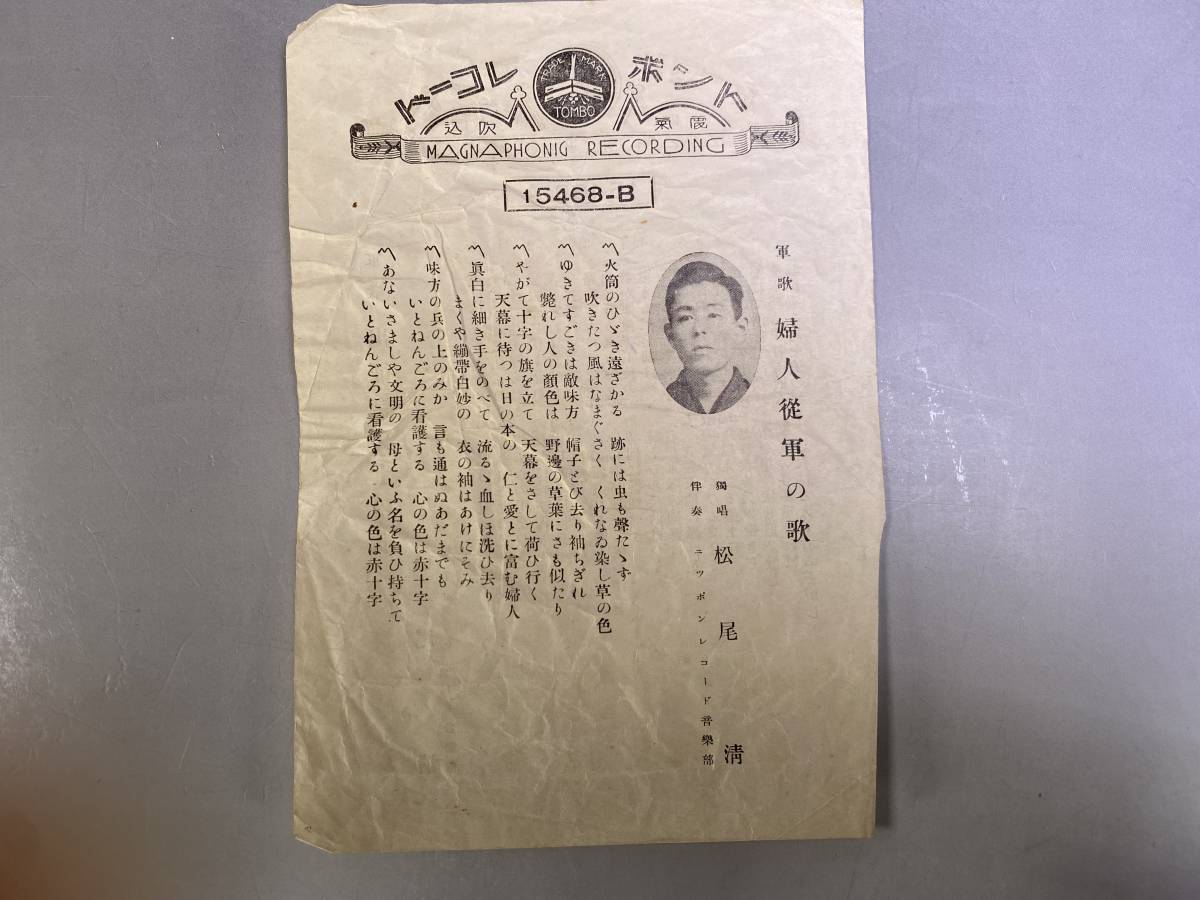 トンボレコード
TRADE MARK
TOMBO
電氣吹込
MAGNAPHONIG RECORDING
15468-B
軍歌 婦人從軍の歌
獨唱 松尾清
伴奏 ニッポンレコード音樂部
〽火筒のひゞき遠ざかる 跡には虫も聲たゝず
吹きたつ風はなまぐさく くれなゐ染し草の色
〽ゆきてすごきは敵味方 帽子とび去り袖ちぎれ
斃れし人の顏色は 野邊の草葉にさも似たり
〽やがて十字の旗を立て 天幕をさして荷ひ行く
天幕に待つは日の本の 仁と愛とに富む婦人
〽眞白に細き手をのべて 流るゝ血しほ洗ひ去り
まくや繃帶白妙の 衣の袖はあけにそみ
〽味方の兵の上のみか 言も通はぬあだまでも
いとねんごろに看護する 心の色は赤十字
〽あないさましや文明の 母といふ名を負ひ持ちて
いとねんごろに看護する 心の色は赤十字